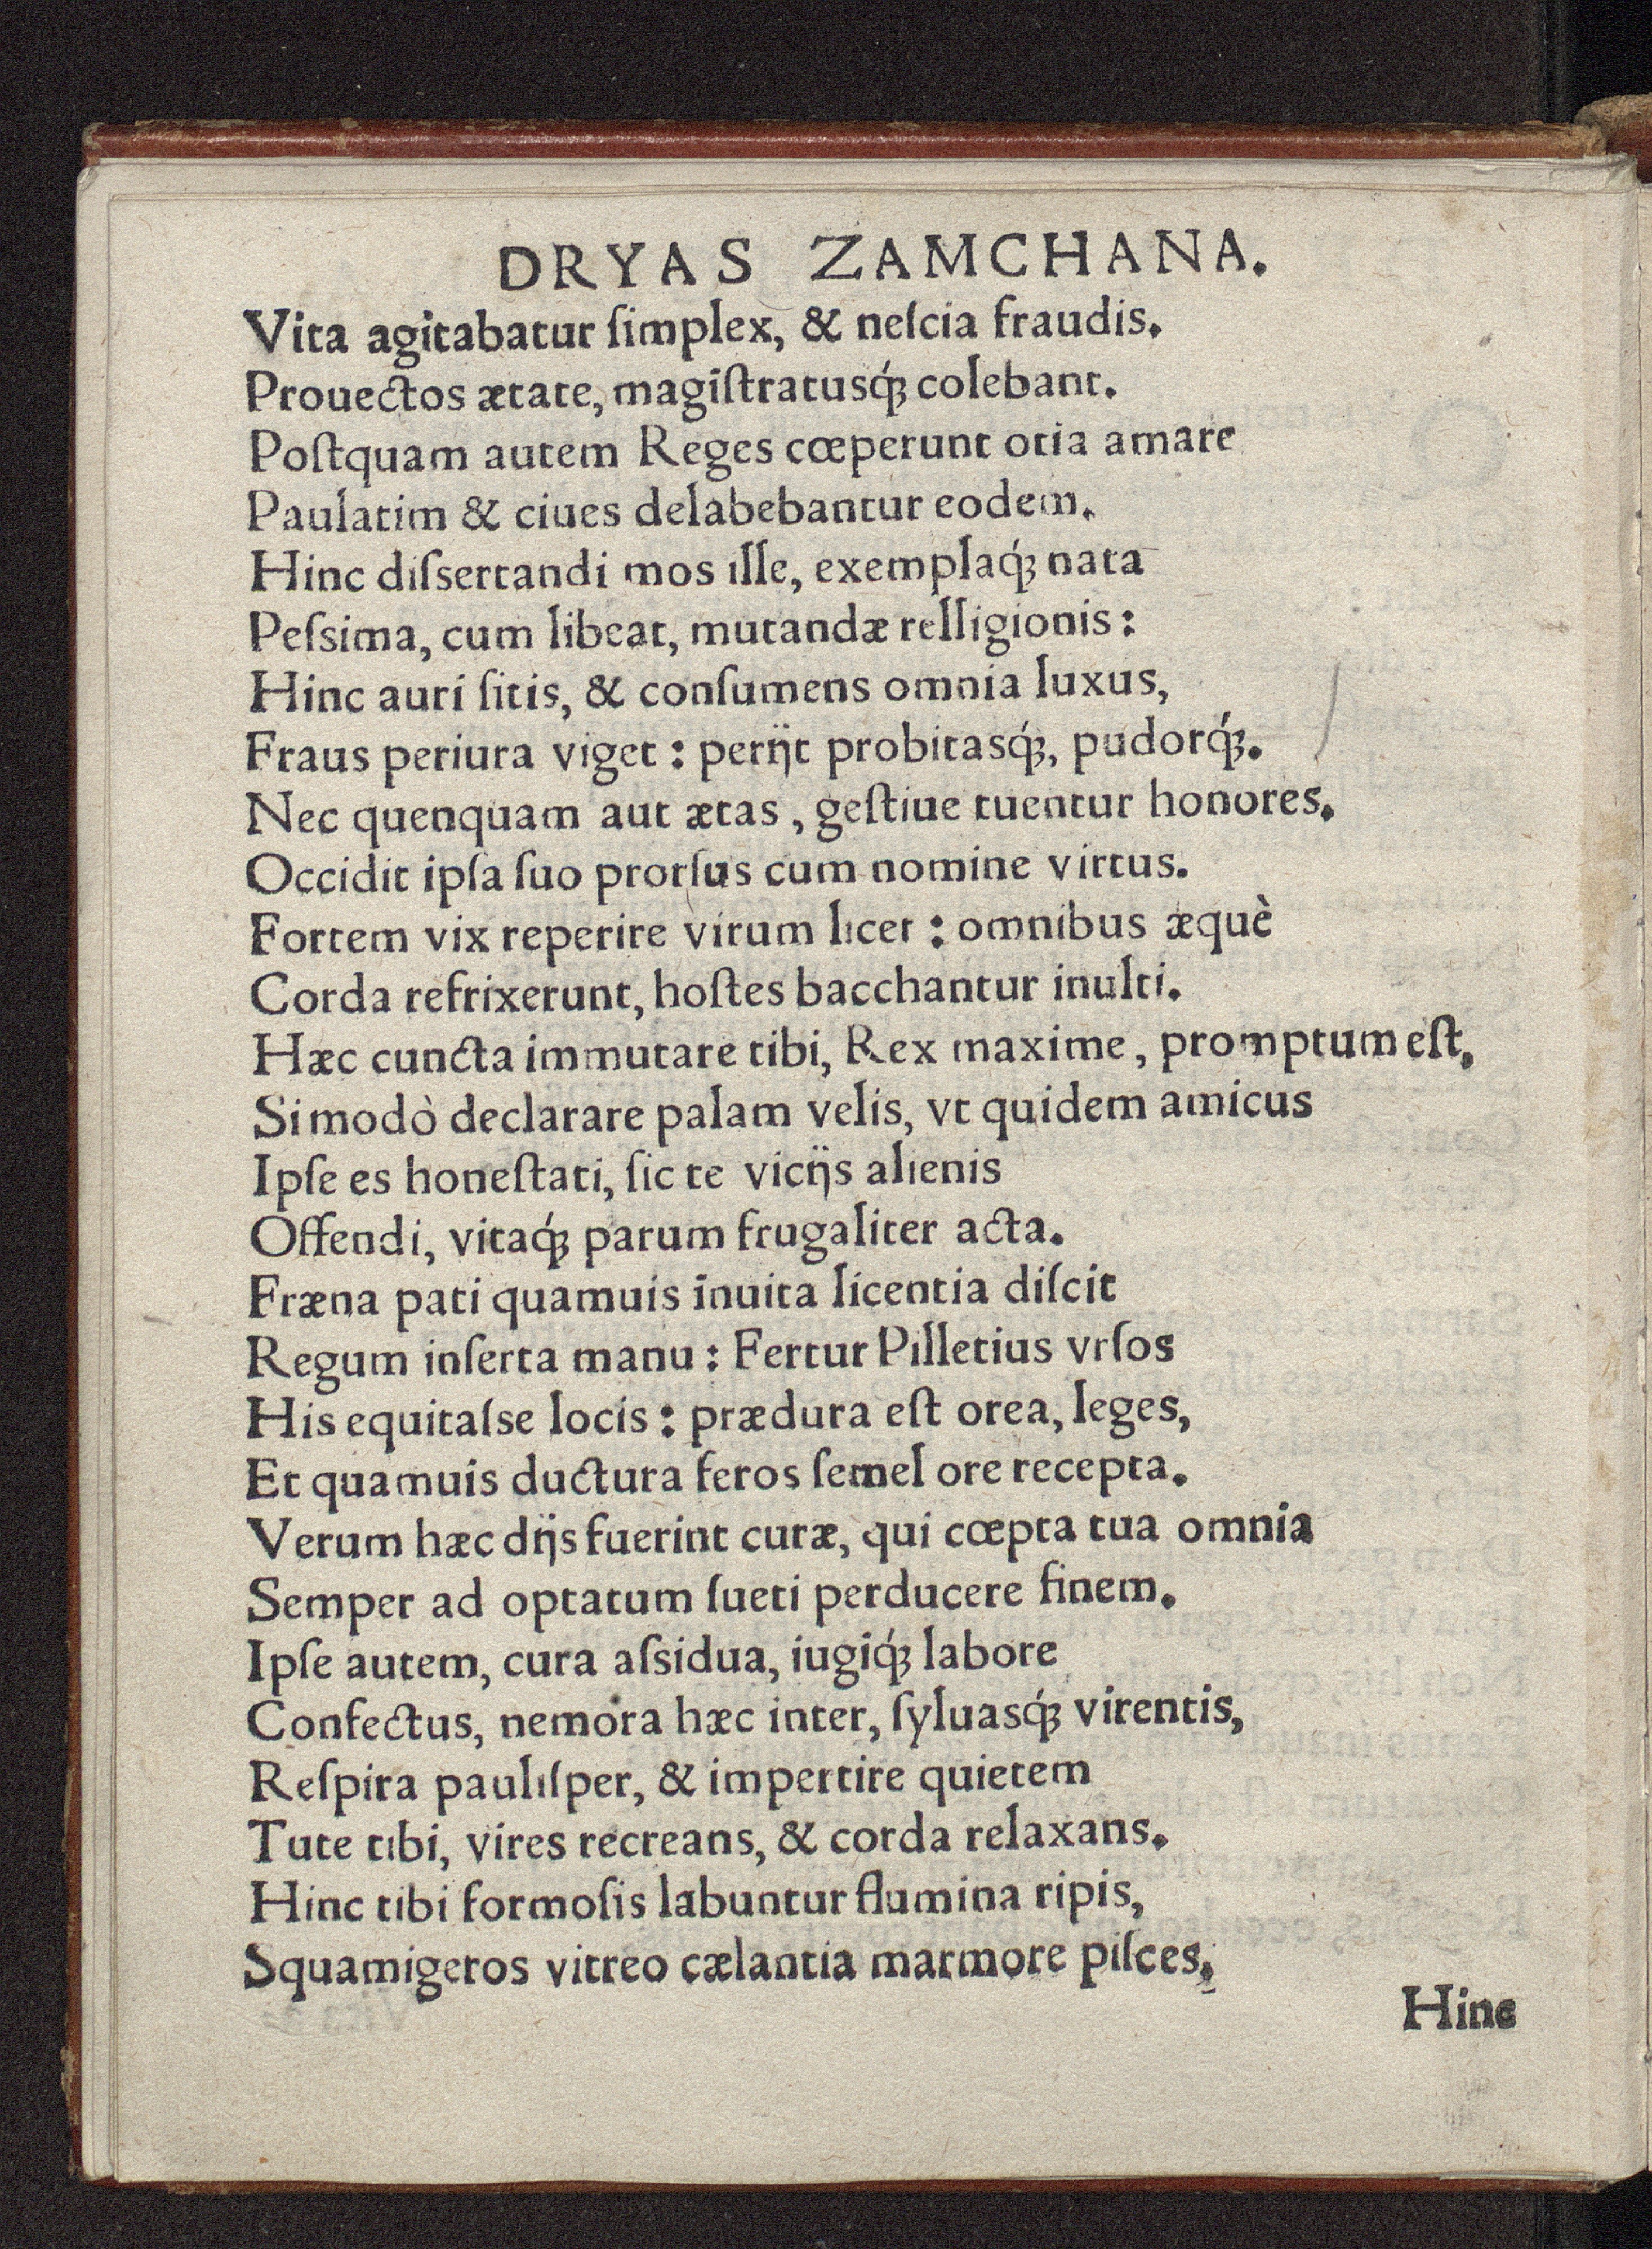 DRYAS ZAMCHANA.
Vita agitabatur ſimplex, & neſcia fraudis.
Prouectos ætate, magiſtratusq́ꝫ colebant.
Poſtquam autem Reges cœperunt otia amare
Paulatim & ciues delabebantur eodem.
Hinc diſsertandi mos ille, exemplaq́ꝫ nata
Peſsima, cum libeat, mutandæ relligionis:
Hinc auri ſitis, & conſumens omnia luxus,
Fraus periura viget: perijt probitasq́ꝫ, pudorq́ꝫ.
Nec quenquam aut ætas, geſtiue tuentur honores.
Occidit ipſa ſuo prorſus cum nomine virtus.
Fortem vix reperire virum licet: omnibus æquè
Corda refrixerunt, hoſtes bacchantur inulti.
Hæc cuncta immutare tibi, Rex maxime, promptum eſt,
Si modò declarare palam velis, vt quidem amicus
Ipſe es honeſtati, ſic te vicijs alienis
Offendi, vitaq́ꝫ parum frugaliter acta.
Fræna pati quamuis inuita licentia diſcit
Regum inſerta manu: Fertur Pilletius vrſos
His equitaſse locis: prædura eſt orea, leges,
Et quamuis ductura feros ſemel ore recepta.
Verum hæc dijs fuerint curæ, qui cœpta tua omnia
Semper ad optatum ſueti perducere finem.
Ipſe autem, cura aſsidua, iugiq́ꝫ labore
Confectus, nemora hæc inter, ſyluasq́ꝫ virentis,
Reſpira pauliſper, & impertire quietem
Tute tibi, vires recreans, & corda relaxans.
Hinc tibi formoſis labuntur flumina ripis,
Squamigeros vitreo cælantia marmore piſces,
Hinc